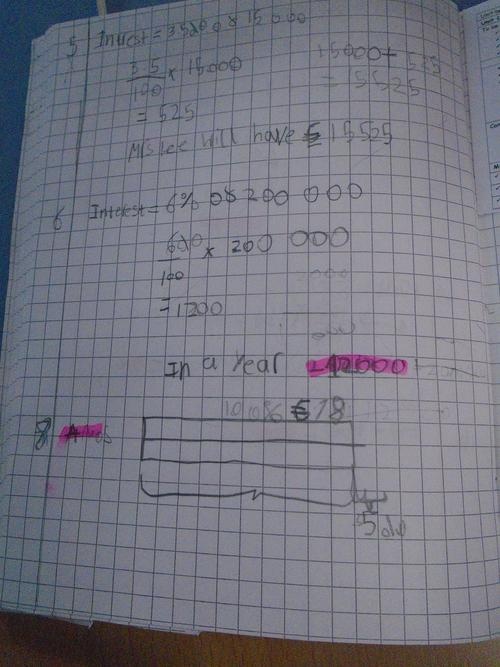 5 Interest = 3.5% of 15 000
3.5/100 × 15000
15000 + 525
= 525
= 15525
Ms Lee will have $15525
6 Interest = 6% of 200 000
6/100 × 200 000
= 1200
In a year 212000
8
100% $78
5